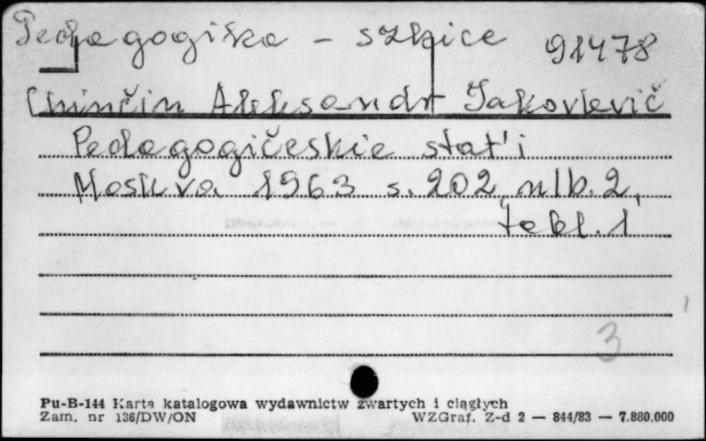 Pedagogika - szkice 91478
Chinčin Aleksandr Jakovlevič
Pedagogičeskie stat'i
Moskva 1963 s. 202, nlb. 2,
tabl. 1
3
Pu-B-144 Karta katalogowa wydawnictw zwartych i ciągłych
Zam. nr 136/DW/ON WZGraf. Z-d 2 — 844/83 — 7.880.000